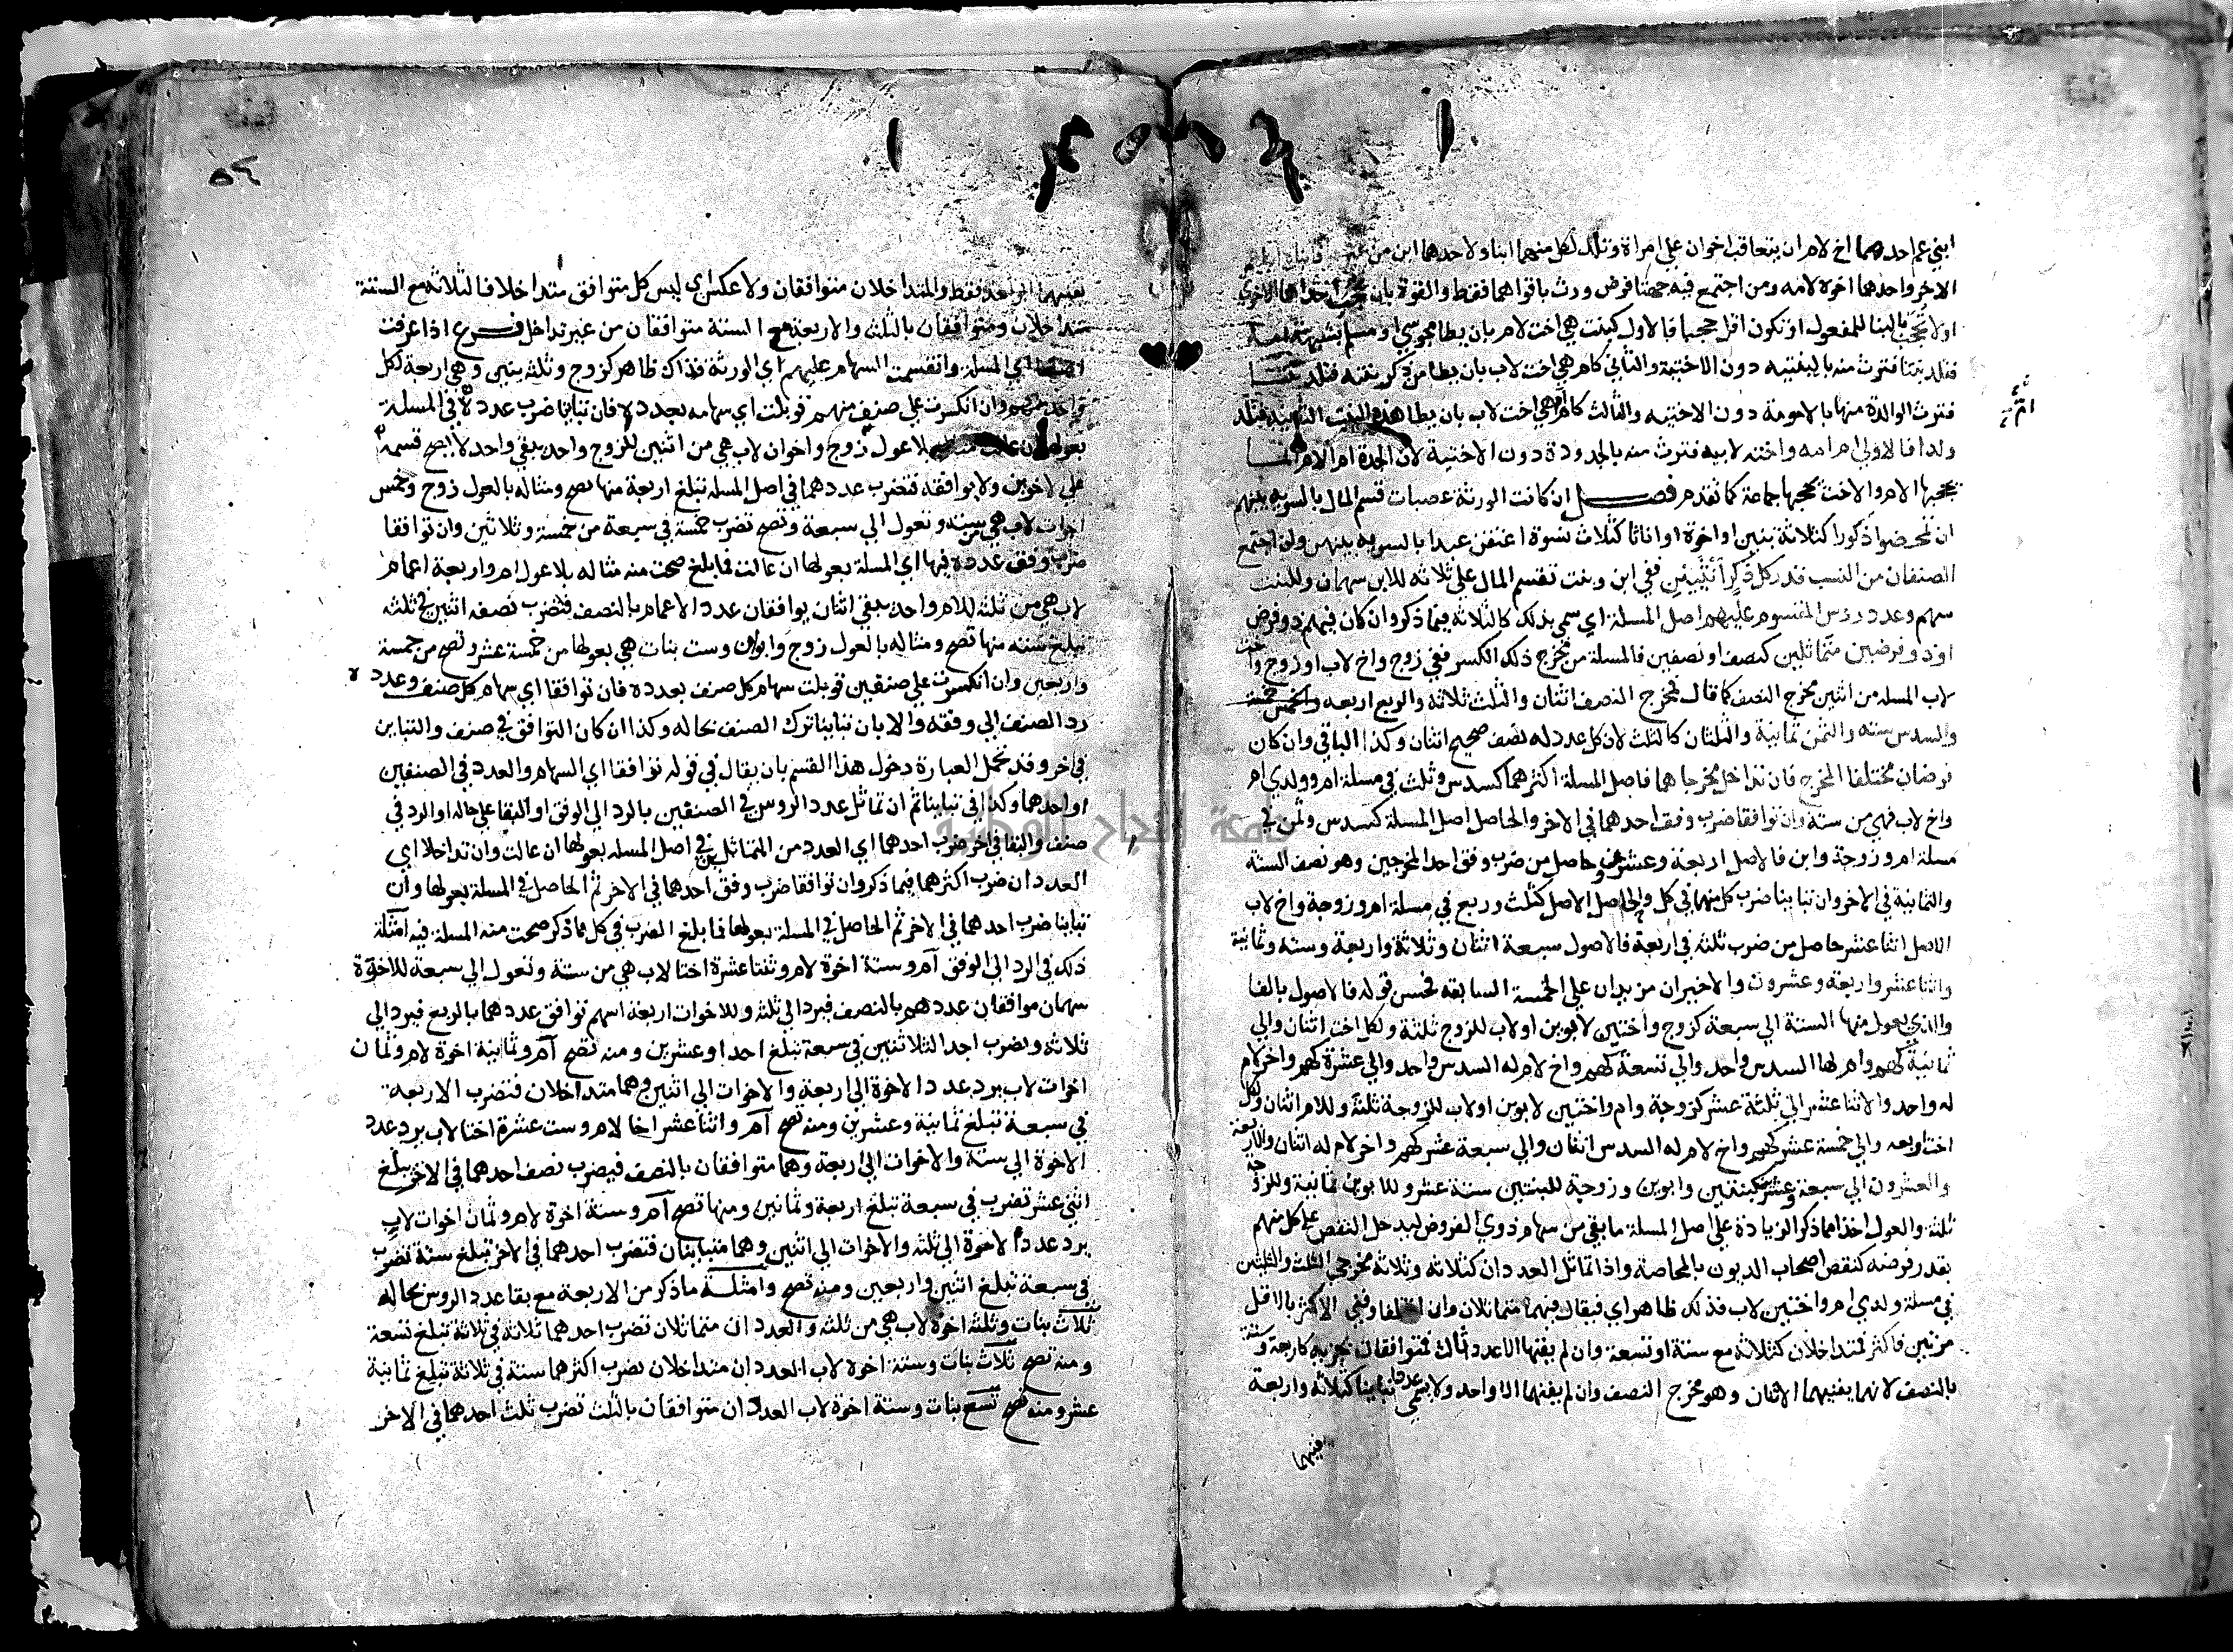 ابني عم احدهما اخ لام ان يتعاقب اخوان على امراة وتلد لكل منهما ابنا ولاحدهما ابن من
الاخر واحدهما اخوه لامه ومن اجتمع فيه جهتا فرض ورث باقواهما فقط والقوة بان تحجب احداهما الاخرى
اولا تحجب بالبنا للمفعول او تكون اقل حجبا فالاول كبنت هي اخت لام بان يطا مجوسي او مسلم بشبهة امه
فتلد بنتا فترث منه بالبنتيه دون الاختية والثاني كام هي اخت لاب بان يطا من ذكر بنته فتلد بنتا
فترث الوالدة منها بالامومة دون الاختيه والثالث كام ام هي اخت لاب بان يطا هذه البنت الثانيه فتلد
ولدا فالاولى ام امه واخته لابيه فترث منه بالجدودة دون الاختية لان الجدة ام الام انما
يحجبها الام والاخت يحجبها جماعة كما تقدم فصل ان كانت الورثة عصبات قسم المال بالسويه بينهم
ان تمحضوا ذكورا كثلاثة بنين او اخوة او اناثا كثلاث نسوة اعتقن عبدا بالسويه بينهن وان اجتمع
الصنفان من النسب قدر كل ذكر انثيين ففي ابن وبنت تقسم المال على ثلاثه للابن سهمان وللبنت
سهم وعدد رؤس المقسوم عليهم اصل المسلة اي سمي بذلك كالثلاثه فيما ذكر وان كان فيهم ذو فرض
او ذو فرضين متماثلين كنصف او نصفين فالمسلة من مخرج ذلك الكسر ففي زوج واخ لاب او زوج واخت
لاب المسله من اثنين مخرج النصف كما قال فمخرج النصف اثنان والثلث ثلاثه والربع اربعه والخمس خمسة
والسدس سته والثمن ثمانية والثلثان كالثلث لان كل عدد له نصف صحيح اثنان وكذا الباقي وان كان
فرضان مختلفا المخرج فان تداخل مخرجاهما فاصل المسلة اكثرهما كسدس وثلث في مسلة ام وولدي ام
واخ لاب فهي من ستة وان توافقا ضرب وفق احدهما في الاخر والحاصل اصل المسلة كسدس وثمن في
مسلة ام وزوجة وابن فالاصل اربعة وعشرون حاصل من ضرب وفق احد المخرجين وهو نصف الستة
والثمانية في الاخر وان تباينا ضرب كل منهما في كل والحاصل الاصل كثلث وربع في مسلة ام وزوجة واخ لاب
الاصل اثنا عشر حاصل من ضرب ثلثه في اربعة فالاصول سبعة اثنان وثلاثة واربعة وسته وثمانية
واثنا عشر واربعة وعشرون والاخيران مزيدان على الخمسة السابقه فحسن قوله فالاصول بالفا
والذي يعول منها الستة الى سبعة كزوج واختين لابوين او لاب للزوج ثلثة ولكل اخت اثنان والى
ثمانية كهم وام لها السدس واحد والى تسعة كهم واخ لام له السدس واحد والى عشرة كهم واخر لام
له واحد والاثنا عشر الى ثلثة عشر كزوجة وام واختين لابوين او لاب للزوجة ثلثة وللام اثنان ولكل
اخت اربعه والى خمسة عشر كهم واخ لام له السدس اثنان والى سبعة عشر كهم واخر لام له اثنان والاربعة
والعشرون الى سبعة وعشرين كبنتين وابوين وزوجة للبنتين ستة عشر وللابوين ثمانية وللزوجة
ثلثة والعول اخذا مما ذكر الزيادة على اصل المسلة ما بقي من سهام ذوي الفروض ليدخل النقص على كل منهم
بقدر فرضه كنقص اصحاب الديون بالمحاصة واذا تماثل العددان كثلاثه وثلاثه مخرجي الثلث والثلثين
في مسلة ولدي ام واختين لاب فذلك ظاهر اي فيقال فيهما متماثلان وان اختلفا وفني الاكثر بالاقل
مرتين فاكثر فمتداخلان كثلاثه مع ستة او تسعة وان لم يفنهما الا عدد ثالث فمتوافقان بجزيه كاربعة وستة
بالنصف لانهما يفنيهما الاثنان وهو مخرج النصف وان لم يفنهما الا واحد ولا يسمى عددا تباينا كثلاثه واربعة
فيهما
٥٤
يفنيهما الواحد فقط والمتداخلان متوافقان ولا عكس اي ليس كل متوافق متداخلا فالثلاثه مع الستة
متداخلان ومتوافقان بالثلث والاربعة مع الستة متوافقان من غير تداخل فرع اذا عرفت
اصلها اي المسلة وانقسمت السهام عليهم اي الورثة فذاك ظاهر كزوج وثلثه بنين وهي اربعة لكل
واحد منهم وان انكسرت على صنف منهم قوبلت اي سهامه بعدده فان تباينا ضرب عدده في المسلة
بعولها ان عالت بلا عول زوج واخوان لاب هي من اثنين للزوج واحد يبقي واحد لا يصح قسمه
على الاخوين ولا يوافقه فتضرب عددهما في اصل المسله تبلغ اربعة منها تصح ومثاله بالعول زوج وخمس
اخوات لاب هي من ستة وتعول الى سبعة وتصح تضرب خمسة في سبعة من خمسة وثلاثين وان توافقا
ضرب وفق عدده فيها اي المسلة بعولها ان عالت فما بلغ صحت منه مثاله بلا عول ام واربعة اعمام
لاب هي من ثلثه للام واحد يبقي اثنان يوافقان عدد الاعمام بالنصف فتضرب نصفه اثنين في ثلثه
تبلغ ستة منها تصح ومثاله بالعول زوج وابوان وست بنات هي بعولها من خمسة عشر وتصح من خمسة
واربعين وان انكسرت على صنفين قوبلت سهام كل صنف بعدده فان توافقا اي سهام كل صنف وعدده
رد الصنف الى وفقه والا بان تباينا ترك الصنف بحاله وكذا ان كان التوافق في صنف والتباين
في اخر وقد تحمل العبارة دخول هذا القسم بان يقال في قوله توافقا اي السهام والعدد في الصنفين
او احدهما وكذا في تباينا ثم ان تماثل عدد الروس في الصنفين بالرد الى الوفق او البقا على حاله او الرد في
صنف والبقا في اخر ضرب احدهما اي العدد من المتماثلين في اصل المسله بعولها ان عالت وان تداخلا اي
العددان ضرب اكثرهما فيما ذكر وان توافقا ضرب وفق احدهما في الاخر ثم الحاصل في المسلة بعولها وان
تباينا ضرب احدهما في الاخر ثم الحاصل في المسلة بعولها فما بلغ الضرب في كل ما ذكر صحت منه المسلة فيه امثلة
ذلك في الرد الى الوفق ام وستة اخوة لام وثنتا عشرة اختا لاب هي من ستة وتعول الى سبعة للاخوة
سهمان موافقان عددهم بالنصف فيرد الى ثلثه وللاخوات اربعة اسهم توافق عددهما بالربع فيرد الى
ثلاثه وتضرب احد الثلاثتين في سبعة تبلغ احدا وعشرين ومنه تصح ام وثمانية اخوة لام وثمان
اخوات لاب يرد عدد الاخوة الى اربعة والاخوات الى اثنين وهما متداخلان فتضرب الاربعة
في سبعة تبلغ ثمانية وعشرين ومنه تصح ام واثنا عشر اخا لام وست عشرة اختا لاب يرد عدد
الاخوة الى ستة والاخوات الى اربعة وهما متوافقان بالنصف فيضرب نصف احدهما في الاخر يبلغ
اثني عشر تضرب في سبعة تبلغ اربعة وثمانين ومنها تصح ام وستة اخوة لام وثمان اخوات لاب
يرد عدد الاخوة الى ثلثه والاخوات الى اثنين وهما متباينان فتضرب احدهما في الاخر تبلغ ستة تضرب
في سبعة تبلغ اثنين واربعين ومنه تصح وامثلة ما ذكر من الاربعة مع بقا عدد الروس بحاله
ثلاث بنات وثلثه اخوة لاب هي من ثلثه والعددان متماثلان تضرب احدهما ثلاثه في ثلاثة تبلغ تسعة
ومنه تصح ثلاث بنات وستة اخوة لاب العددان متداخلان تضرب اكثرهما ستة في ثلاثة تبلغ ثمانية
عشر ومنه تصح تسع بنات وستة اخوة لاب العددان متوافقان بالثلث تضرب ثلث احدهما في الاخر
جامعة النجاح الوطنية